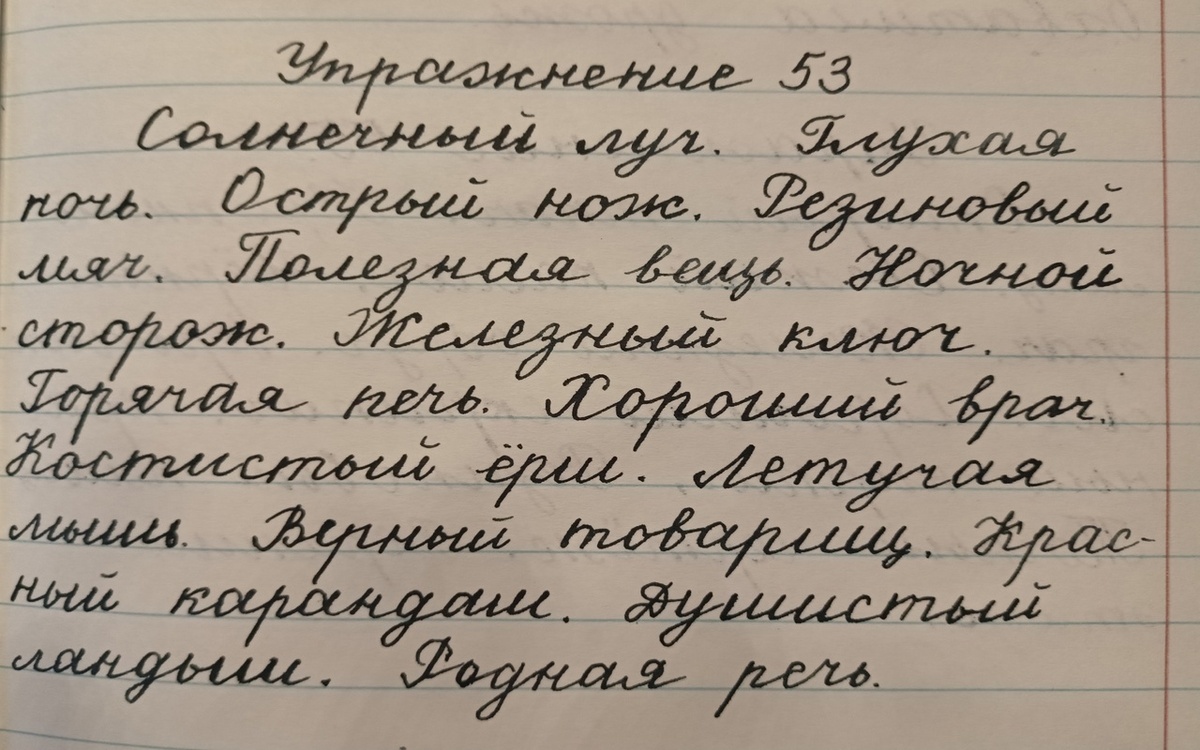 Упражнение 53
Солнечный луч. Глухая
ночь. Острый нож. Резиновый
мяч. Полезная вещь. Ночной
сторож. Железный ключ.
Горячая печь. Хороший врач.
Костистый ёрш. Летучая
мышь. Верный товарищ. Крас-
ный карандаш. Душистый
ландыш. Родная речь.